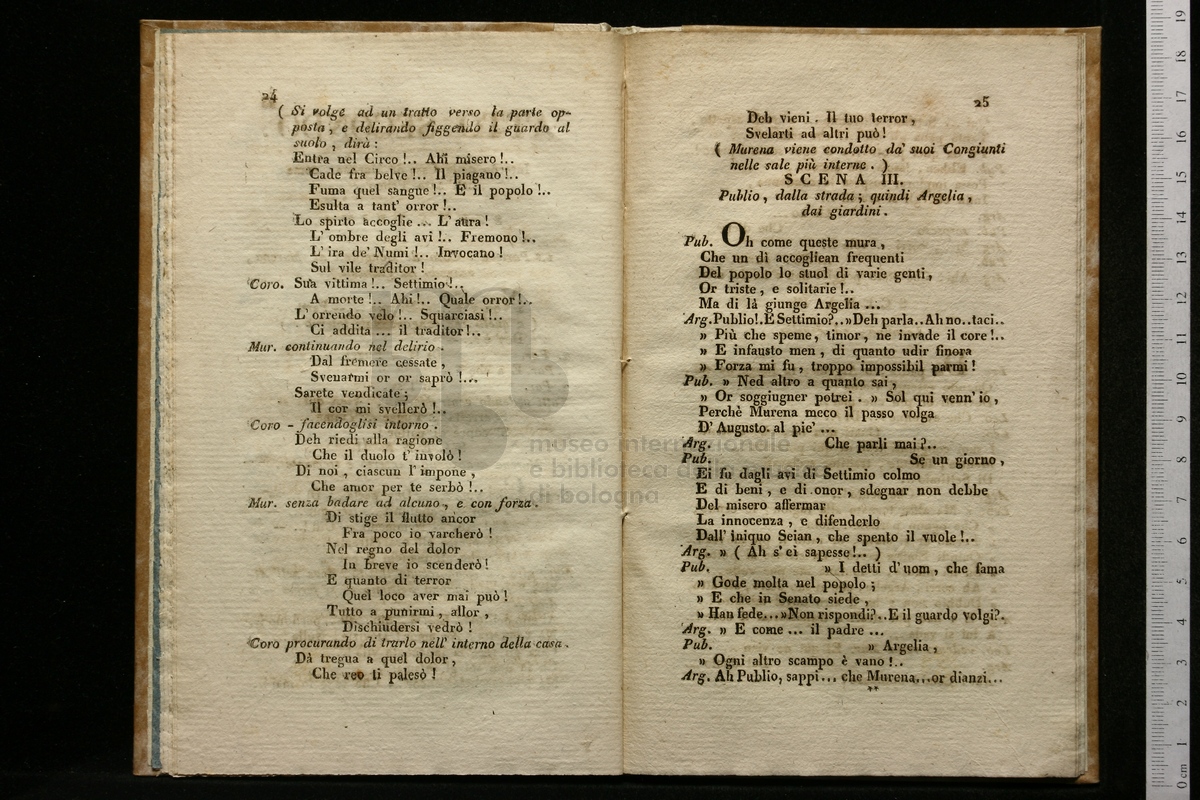 24
( Si volge ad un tratto verso la parte op-
posta, e delirando figgendo il guardo al
suolo, dirà :
Entra nel Circo !.. Ahi misero !..
Cade fra belve !.. Il piagano !..
Fuma quel sangue !.. E il popolo !..
Esulta a tant' orror !..
Lo spirto accoglie ... L' aura !
L' ombre degli avi !.. Fremono !..
L' ira de' Numi !.. Invocano !
Sul vile traditor !
Coro. Sua vittima !.. Settimio !..
A morte !.. Ahi !.. Quale orror !..
L' orrendo velo !.. Squarciasi !..
Ci addita ... il traditor !..
Mur. continuando nel delirio .
Dal fremere cessate ,
Svenarmi or or saprò !...
Sarete vendicate ;
Il cor mi svellerò !..
Coro - facendoglisi intorno .
Deh riedi alla ragione
Che il duolo t' involò !
Di noi , ciascun l' impone ,
Che amor per te serbò !..
Mur. senza badare ad alcuno , e con forza .
Di stige il flutto ancor
Fra poco io varcherò !
Nel regno del dolor
In breve io scenderò !
E quanto di terror
Quel loco aver mai può !
Tutto a punirmi , allor ,
Dischiudersi vedrò !
Coro procurando di trarlo nell' interno della casa .
Dà tregua a quel dolor ,
Che reo ti palesò !
25
Deh vieni . Il tuo terror ,
Svelarti ad altri può !
( Murena viene condotto da' suoi Congiunti
nelle sale più interne . )
SCENA III.
Publio , dalla strada ; quindi Argelia ,
dai giardini .
Pub. Oh come queste mura ,
Che un dì accogliean frequenti
Del popolo lo stuol di varie genti ,
Or triste , e solitarie !..
Ma di là giunge Argelia ...
Arg. Publio !. E Settimio ?.. » Deh parla .. Ah no .. taci ..
» Più che speme , timor , ne invade il core !..
» E infausto men , di quanto udir finora
» Forza mi fu , troppo impossibil parmi !
Pub. » Ned altro a quanto sai ,
» Or soggiugner potrei . » Sol qui venn' io ,
Perchè Murena meco il passo volga
D' Augusto al pie' ...
Arg. Che parli mai ?..
Pub. Se un giorno ,
Ei fu dagli avi di Settimio colmo
E di beni , e di onor , sdegnar non debbe
Del misero affermar
La innocenza , e difenderlo
Dall' iniquo Seian , che spento il vuole !..
Arg. » ( Ah s' ei sapesse !.. )
Pub. » I detti d' uom , che fama
» Gode molta nel popolo ;
» E che in Senato siede ,
» Han fede ... » Non rispondi ?.. E il guardo volgi ?.
Arg. » E come ... il padre ...
Pub. » Argelia ,
» Ogni altro scampo è vano !..
Arg. Ah Publio , sappi ... che Murena ... or dianzi ...
**
museo internazionale
e biblioteca della
di bologna
0 cm 1 2 3 4 5 6 7 8 9 10 11 12 13 14 15 16 17 18 19